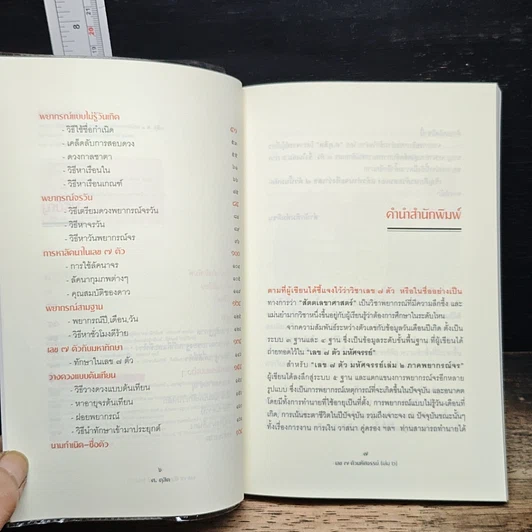 พยากรณ์แบบไม่รู้วันเกิด
- วิธีใช้ชื่อกำเนิด
- เคล็ดลับการสอบดวง
- ดวงกาลชาตา
- วิธีหาเรือนใน
- วิธีหาเรือนเกณฑ์
พยากรณ์จรวัน
- วิธีเตรียมดวงพยากรณ์จรวัน
- วิธีหาจรวัน
- วิธีหาวันพยากรณ์จร
การหาลัคนาในเลข ๗ ตัว
- การใช้ลัคนาจร
- ลัคนากุมภพต่างๆ
- คุณสมบัติของดาว
พยากรณ์สามฐาน
- พยากรณ์ปี,เดือน,วัน
- วิธีหาชั่วโมงดีร้าย
เลข ๗ ตัวกับมหาทักษา
- ทักษาในเลข ๗ ตัว
วางดวงแบบต้นเทียน
- วิธีวางดวงแบบต้นเทียน
- หาอายุจรต้นเทียน
- ฝอยพยากรณ์
- วิธีนำทักษาเข้ามาประยุกต์
นามกำเนิด-ชื่อตัว
๖
คำนำสำนักพิมพ์
ตามที่ผู้เขียนได้ชี้แจงไว้ว่าวิชาเลข ๗ ตัว หรือในชื่ออย่างเป็น
ทางการว่า "สัตตเลขาศาสตร์" เป็นวิชาพยากรณ์ที่มีความลึกซึ้ง และ
แม่นยำมากวิชาหนึ่งขึ้นอยู่กับผู้เรียนรู้ว่าต้องการศึกษาในระดับไหน
จากความสัมพันธ์ระหว่างตัวเลขกับข้อมูลวันเดือนปีเกิด ตั้งเป็น
ระบบ ๓ ฐานและ ๔ ฐาน ซึ่งเป็นระบบระดับชั้นพื้นฐาน ที่ผู้เขียนได้
ถ่ายทอดไว้ใน "เลข ๗ ตัว มหัศจรรย์"
สำหรับ "เลข ๗ ตัว มหัศจรรย์เล่ม ๒ ภาคพยากรณ์จร"
ผู้เขียนได้ลงลึกสู่ระบบ ๕ ฐาน และแตกแขนงการพยากรณ์จรอีกหลาย
รูปแบบ ซึ่งเป็นการพยากรณ์เหตุการณ์ที่จะเกิดขึ้นในปัจจุบัน และอนาคต
โดยมีทั้งการทำนายที่ใช้อายุเป็นที่ตั้ง, การพยากรณ์แบบไม่รู้วัน-เดือนที่
เกิด, การเน้นชะตาชีวิตในปีปัจจุบัน รวมถึงเจาะจง ณ ปัจจุบันขณะนั้นๆ
ทั้งเรื่องการงาน การเงิน วาสนา คู่ครอง ฯลฯ ท่านสามารถทำนายได้
๗